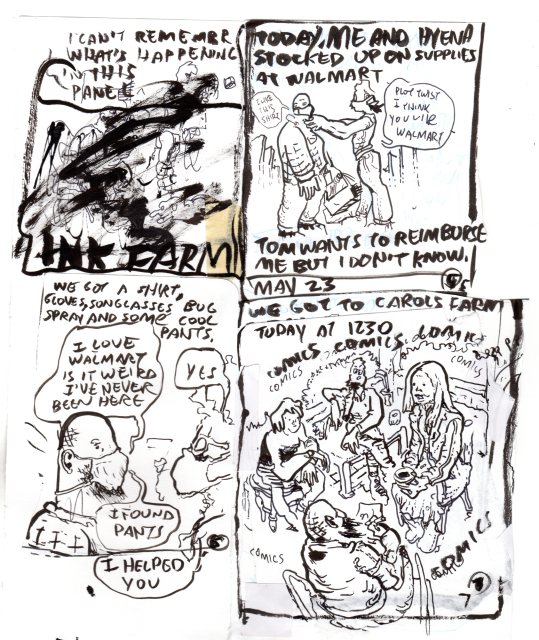 I CAN'T REMEMBR
WHAT'S HAPPENING
IN THIS
PANEL
INK FARM
TODAY, ME AND HYENA
STOCKED UP ON SUPPLIES
AT WALMART
I LIKE
THIS
SHIRT
PLOT TWIST
I THINK
YOU LIKE
WALMART
TOM WANTS TO REIMBURSE
ME BUT I DON'T KNOW.
MAY 23
5
WE GOT A SHIRT,
GLOVES, SONGLASSES BUG
SPRAY AND SOME COOL
PANTS.
I LOVE
WALMART
IS IT WEIRD
I'VE NEVER
BEEN HERE
YES
I FOUND
PANTS
I HELPED
YOU
6
WE GOT TO CAROLS FARM
TODAY AT 1230
COMICS COMICS COMICS
COMICS
COMICS
COMICS
COMICS
COMICS
7